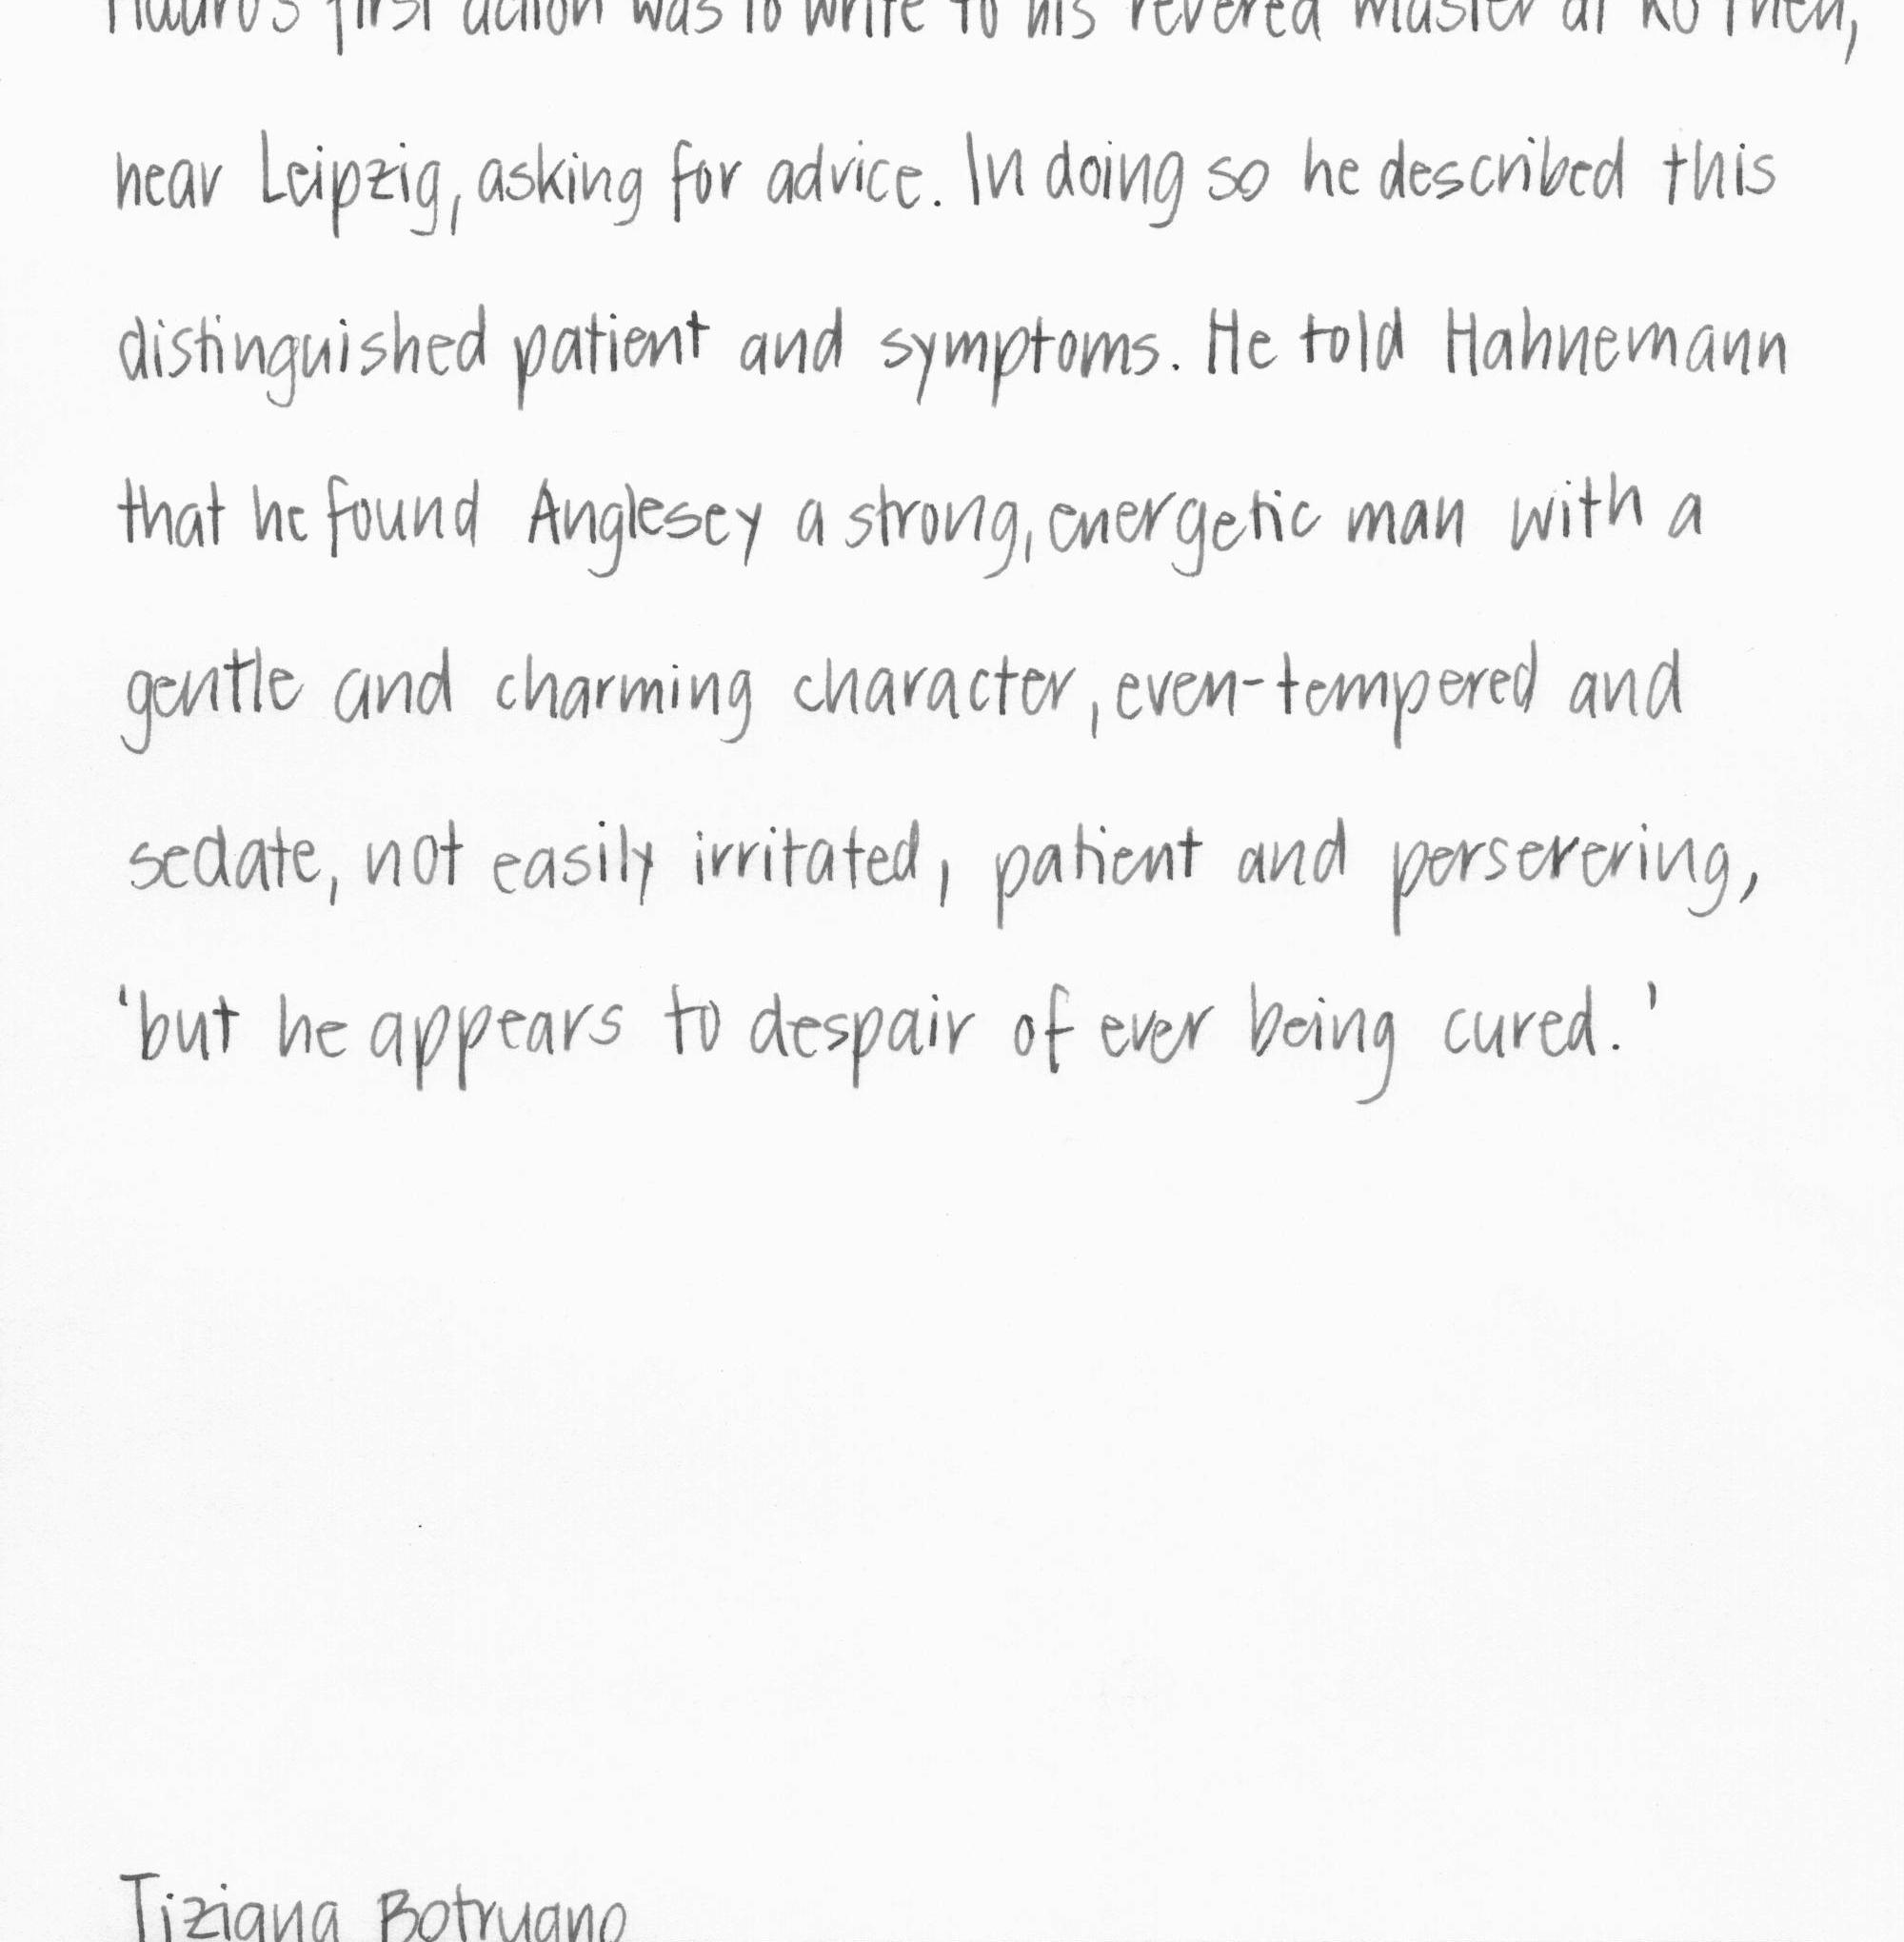 first action was to write to his revered master at Kothen,
near Leipzig, asking for advice. In doing so he described this
distinguished patient and symptoms. He told Hahnemann
that he found Anglesey a strong, energetic man with a
gentle and charming character, even-tempered and
sedate, not easily irritated, patient and perserering,
'but he appears to despair of ever being cured.'
Tiziana Botrugno